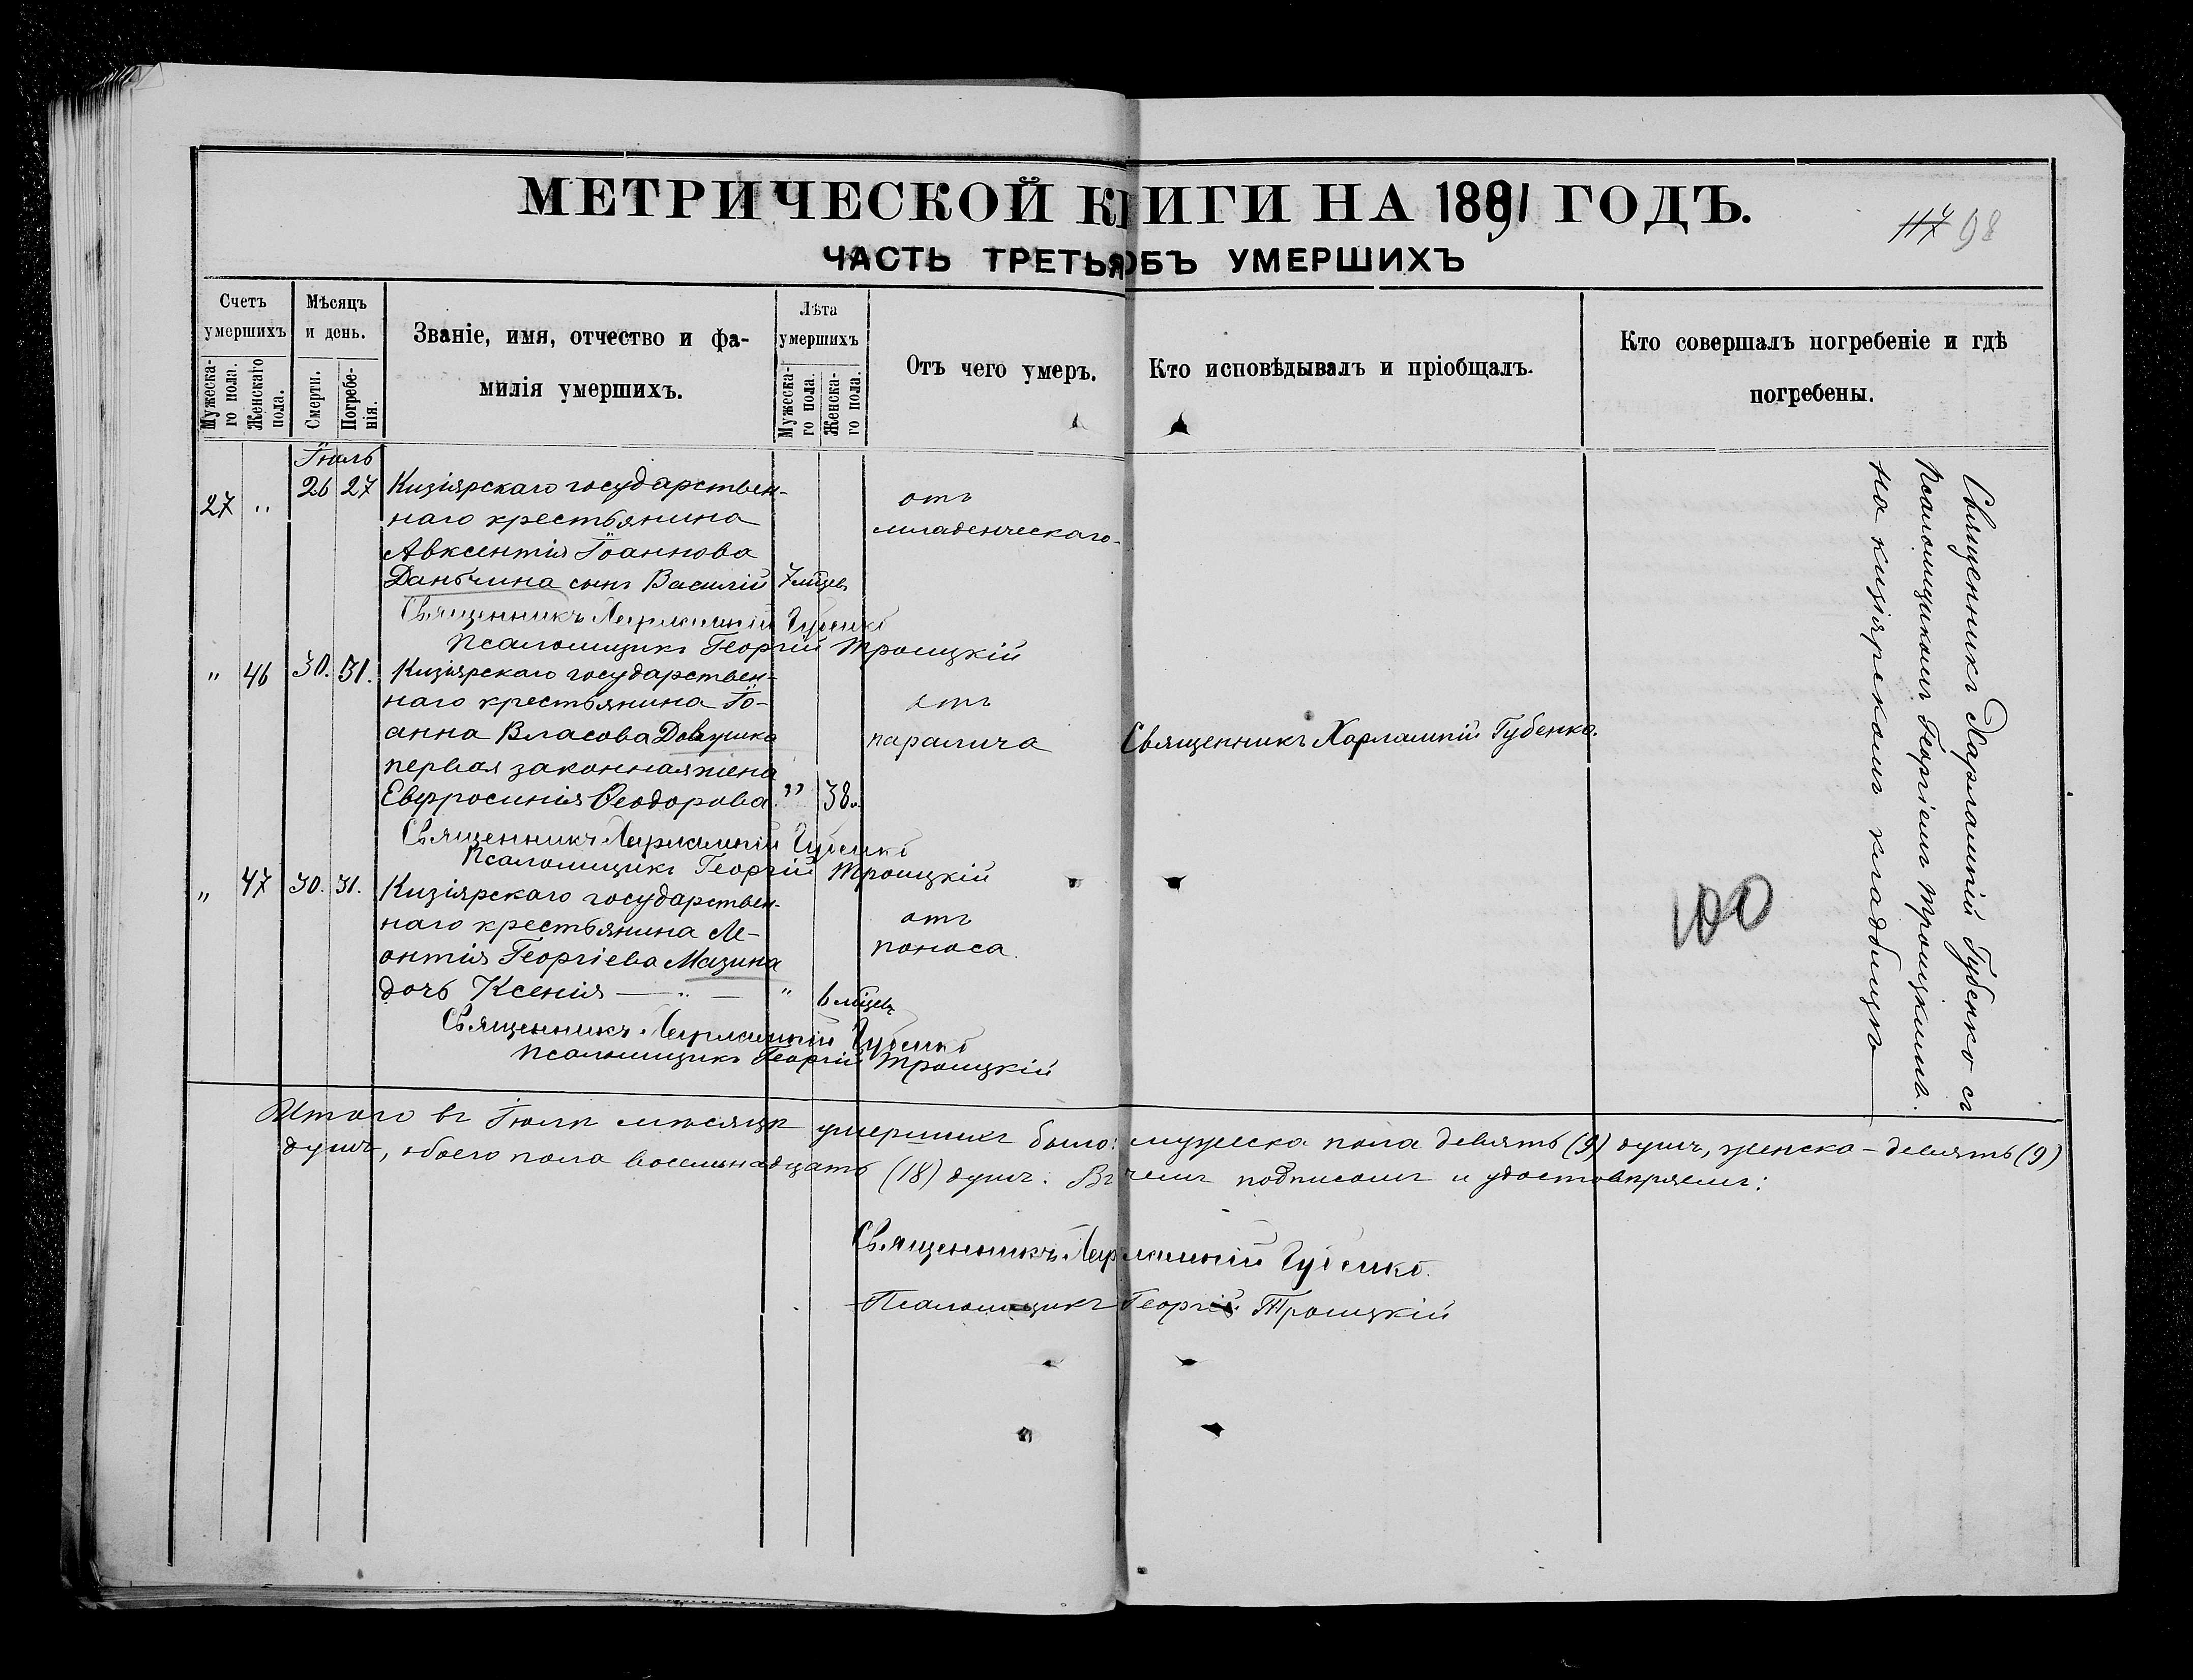 МЕТРИЧЕСКОЙ КНИГИ НА 1891 ГОДЪ.
117 98
ЧАСТЬ ТРЕТЬЯ ОБЪ УМЕРШИХЪ
Счетъ умершихъ
Мужескаго пола.
Женскаго пола.
Мѣсяцъ и день.
Смерти.
Погребенія.
Званіе, имя, отчество и фа-
милія умершихъ.
Лѣта умершихъ
Мужескаго пола.
Женскаго пола.
Отъ чего умеръ.
Кто исповѣдывалъ и пріобщалъ.
Кто совершалъ погребеніе и гдѣ
погребены.
Іюль
27 " 26 27 Кизіярскаго государствен-
наго крестьянина
Авксентія Іоаннова
Даньчина сынъ Василій 7 мѣцев
отъ
младенческаго
Священникъ Харлампій Губенко
Псаломщикъ Георгій Троицкій
" 46 30. 31. Кизіярскаго государствен-
наго крестьянина Іо-
анна Власова Довгушка
первая законная жена
Евфросинія Ѳеодорова " 38.
отъ
паралича
Священникъ Харлампій Губенко.
Священникъ Харлампій Губенко
Псаломщикъ Георгій Троицкій
" 47 30. 31. Кизіярскаго государствен-
наго крестьянина Ле-
онтія Георгіева Мазина
дочь Ксенія — " — " 6 мѣцев
отъ
поноса.
Священникъ Харлампій Губенко
Псаломщикъ Георгій Троицкій
Священникъ Харлампій Губенко съ
Псаломщикомъ Георгіемъ Троицкимъ.
на кизіярскомъ кладбищѣ
100
Итого въ Іюлѣ мѣсяцѣ умершихъ было: мужеска пола девять (9) душъ, женска - девять (9)
душъ, обоего пола восемьнадцать (18) душъ. Въ чемъ подписомъ и удостовѣряемъ:
Священникъ Харлампій Губенко.
Псаломщикъ Георгій Троицкій